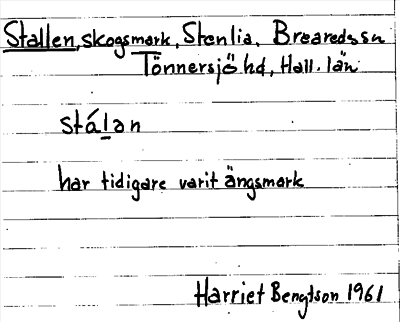 Stallen, skogsmark, Stenlia. Breareds sn
Tönnersjö hd, Hall. län
stálan
har tidigare varit ängsmark
Harriet Bengtson 1961